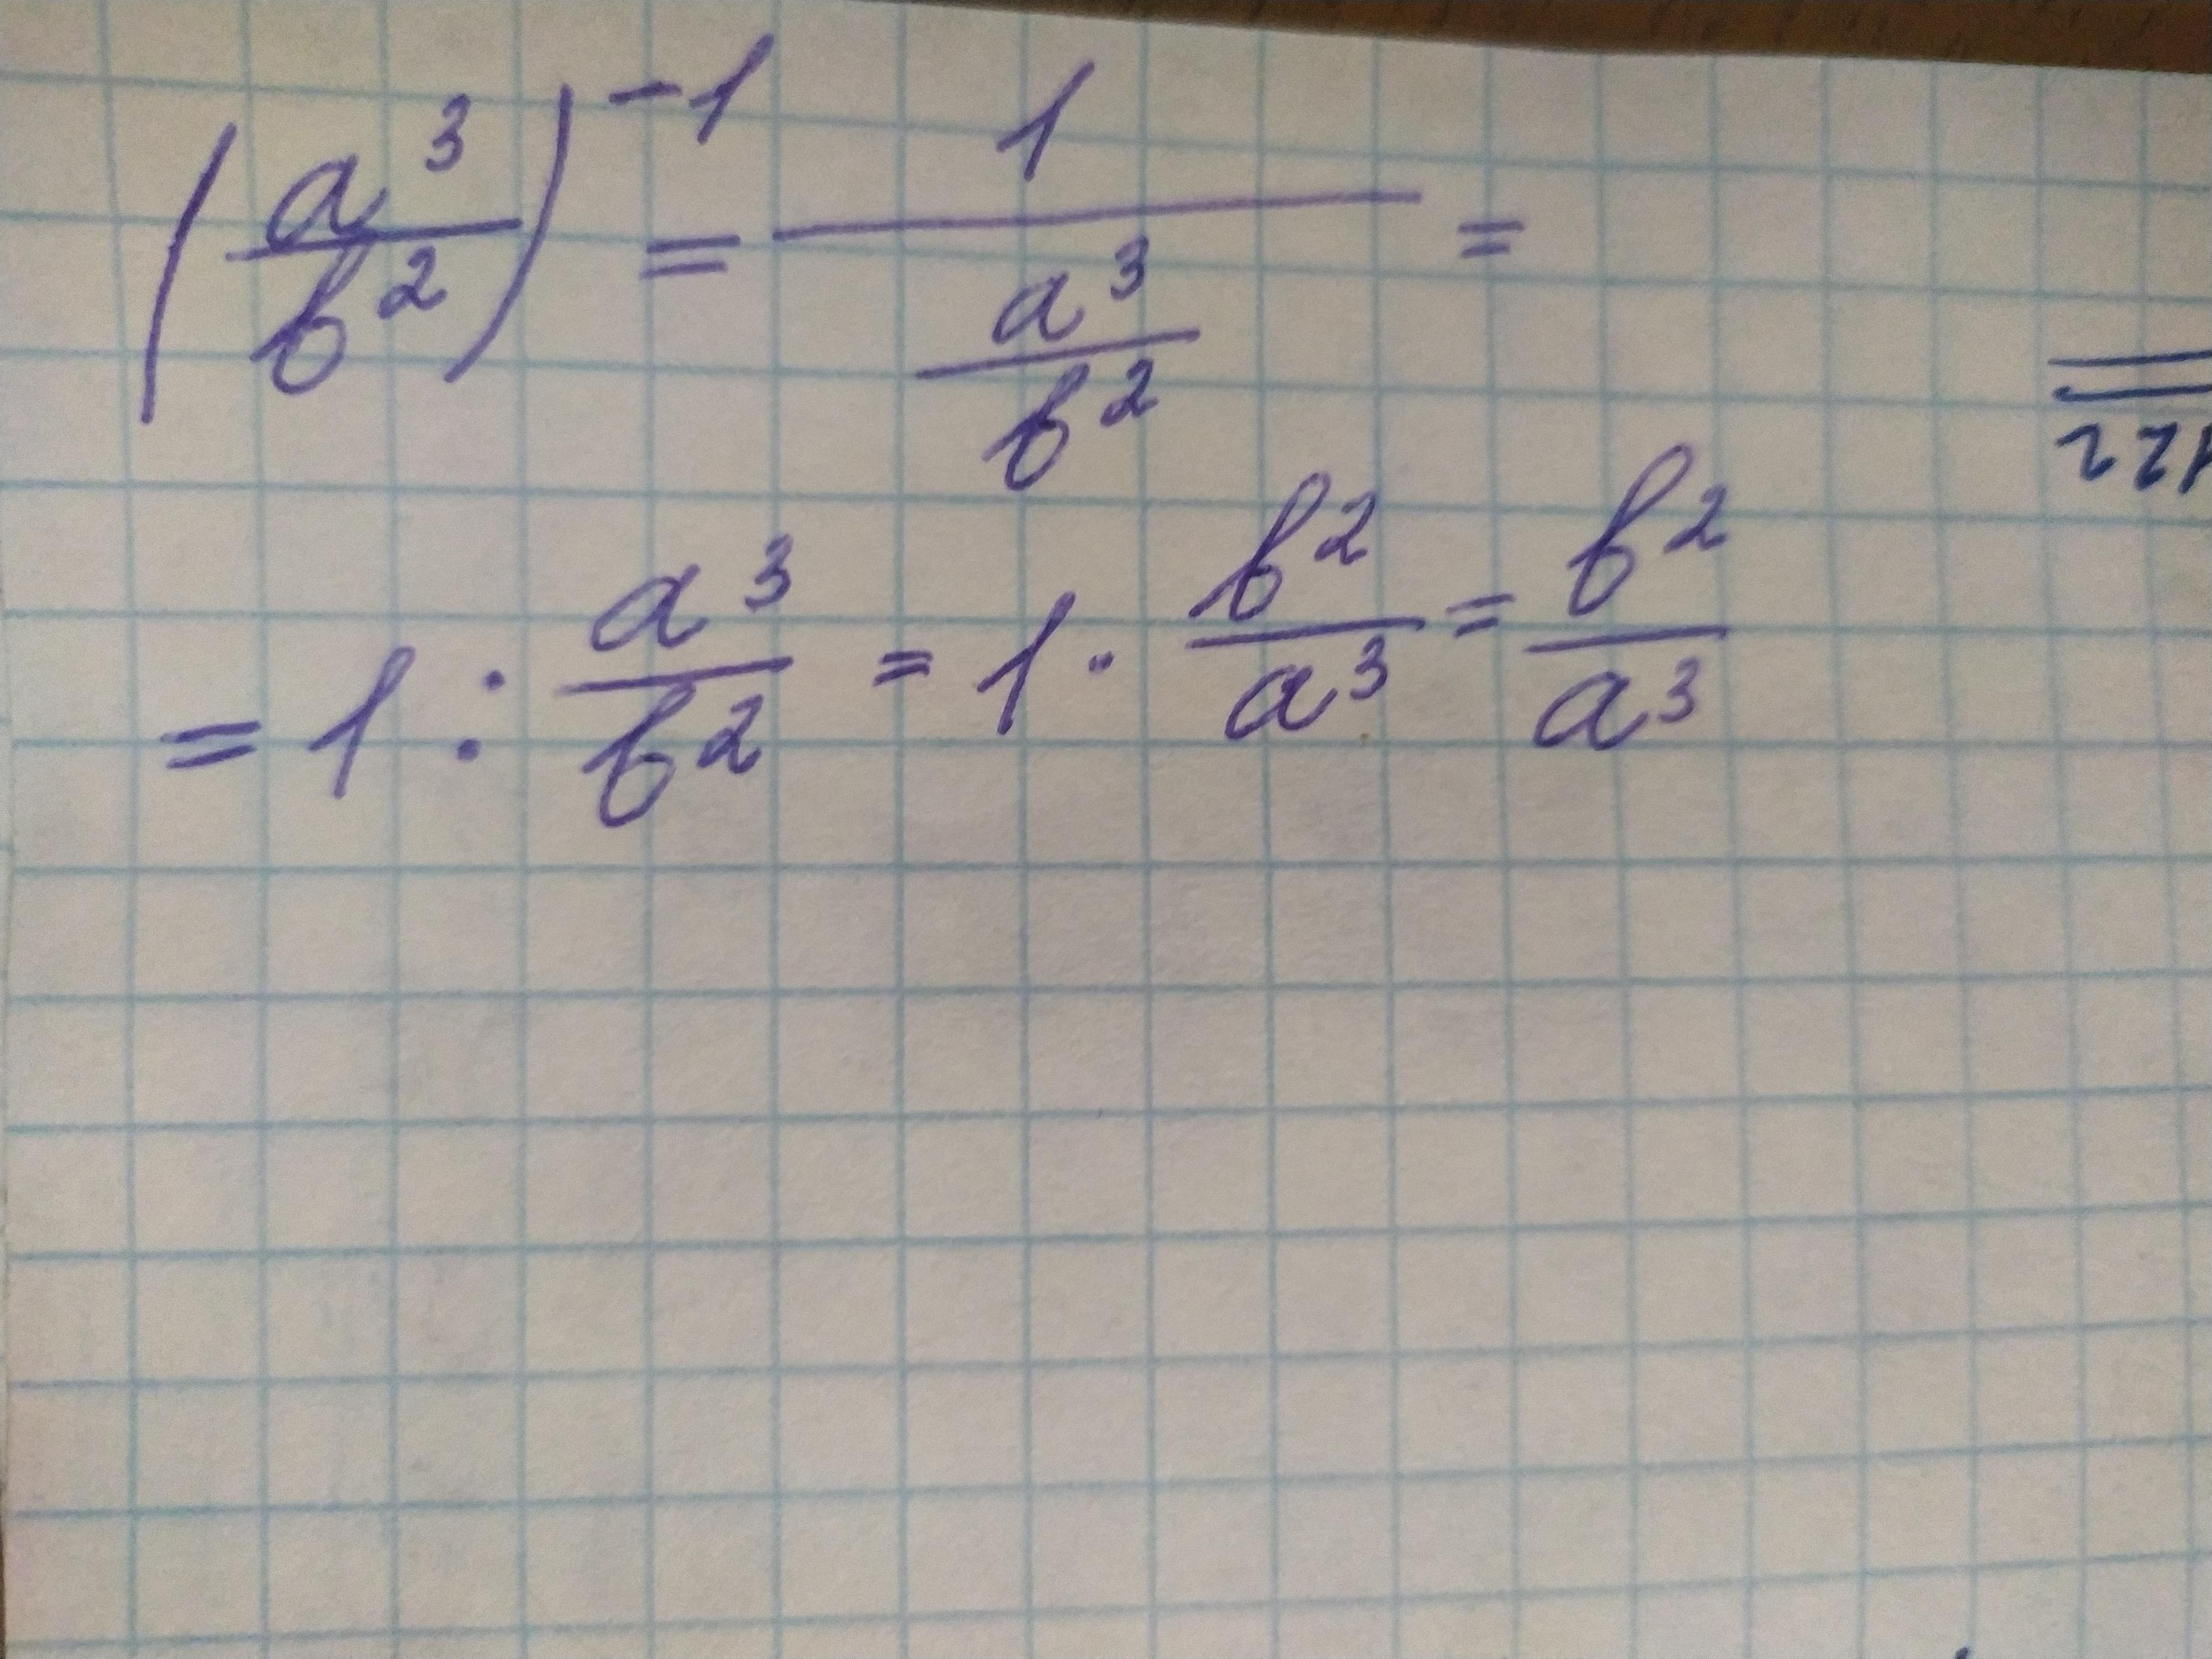 (a³/b²)⁻¹ = 1/(a³/b²) =
= 1 : a³/b² = 1 · b²/a³ = b²/a³